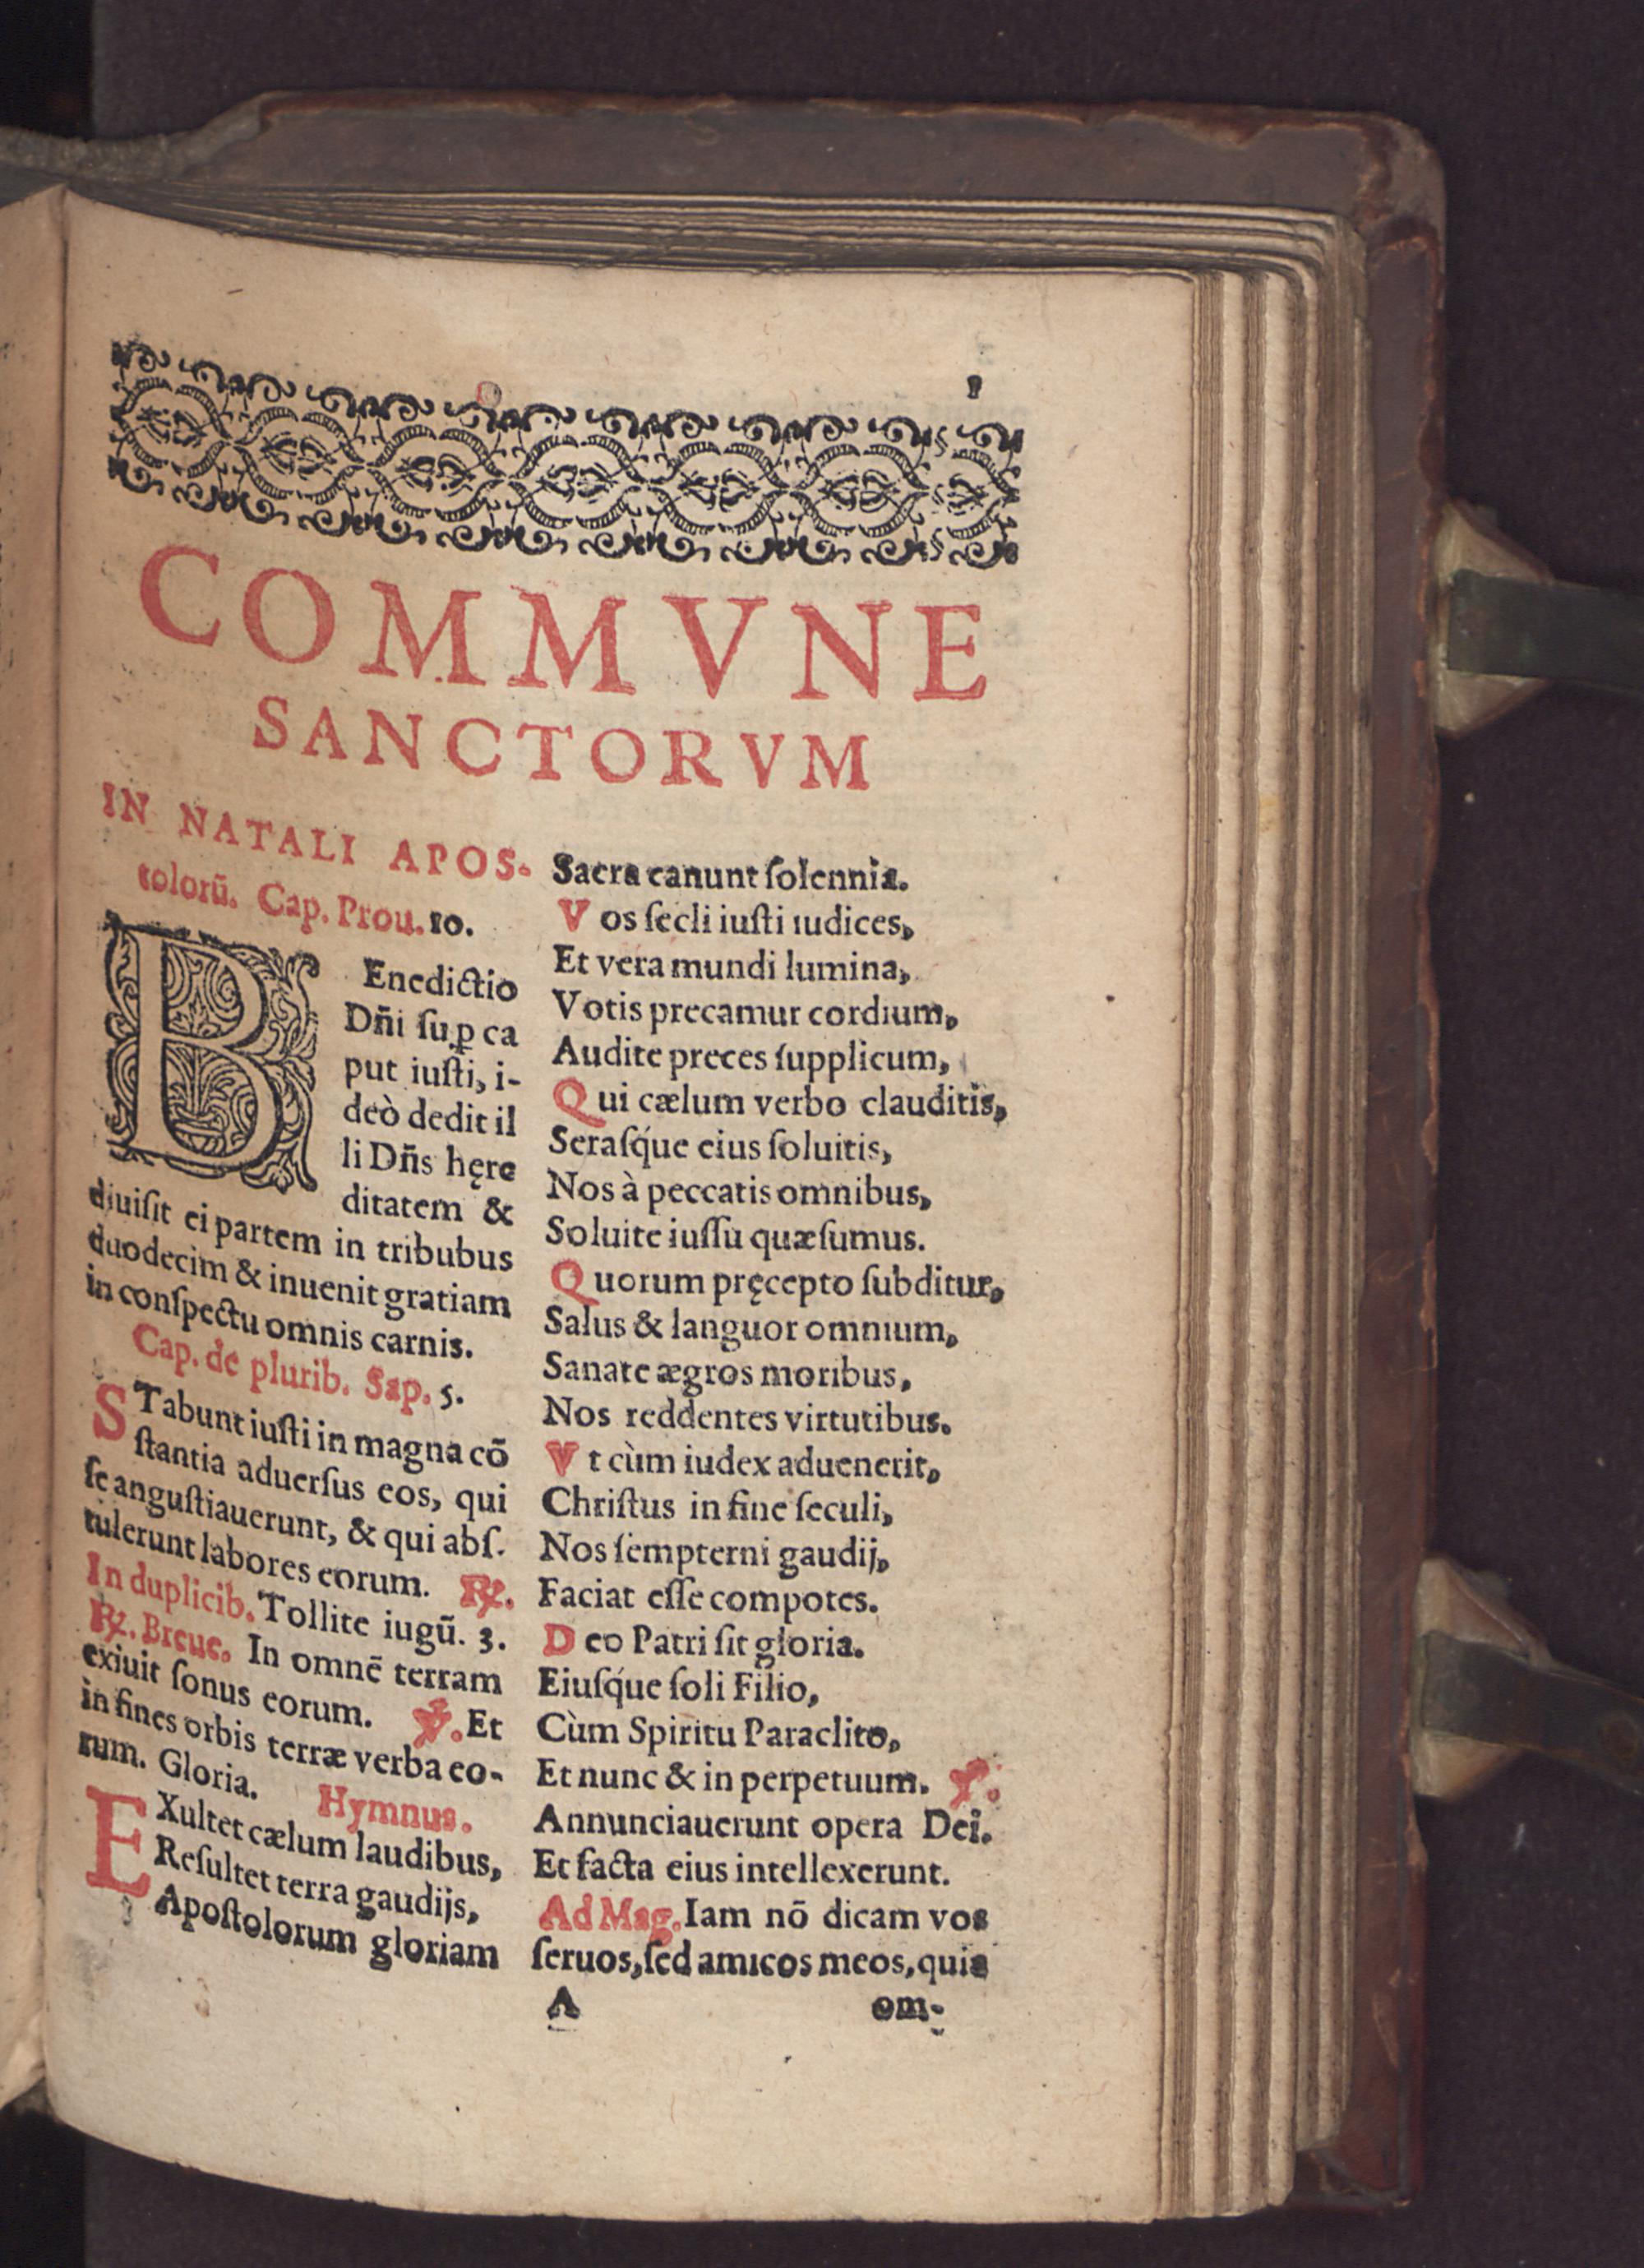 1
COMMVNE
SANCTORVM
IN NATALI APOS-
tolorũ. Cap. Prou. 10.
BEnedictio
Dñi ſuꝑ ca
put iuſti, i-
deò dedit il
li Dñs hęre
ditatem &
diuiſit ei partem in tribubus
duodecim & inuenit gratiam
in conſpectu omnis carnis.
Cap. de plurib. Sap. 5.
STabunt iuſti in magna cõ
ſtantia aduerſus eos, qui
ſe anguſtiauerunt, & qui abſ.
tulerunt labores eorum. ℟.
In duplicib. Tollite iugũ. 3.
℟. Breue. In omnẽ terram
exiuit ſonus eorum. ℣. Et
in fines orbis terræ verba eo-
rum. Gloria. Hymnus.
EXultet cælum laudibus,
Reſultet terra gaudijs,
Apoſtolorum gloriam
Sacra canunt ſolennia.
Vos ſecli iuſti iudices,
Et vera mundi lumina,
Votis precamur cordium,
Audite preces ſupplicum,
Qui cælum verbo clauditis,
Seraſq́ue eius ſoluitis,
Nos à peccatis omnibus,
Soluite iuſſu quæſumus.
Quorum pręcepto ſubditur,
Salus & languor omnium,
Sanate ægros moribus,
Nos reddentes virtutibus.
Vt cùm iudex aduenerit,
Chriſtus in fine ſeculi,
Nos ſempterni gaudij,
Faciat eſſe compotes.
Deo Patri ſit gloria.
Eiuſq́ue ſoli Filio,
Cùm Spiritu Paraclito,
Et nunc & in perpetuum. ℣.
Annunciauerunt opera Dei.
Et facta eius intellexerunt.
Ad Mag. Iam nõ dicam vos
ſeruos, ſed amicos meos, quia
A om-